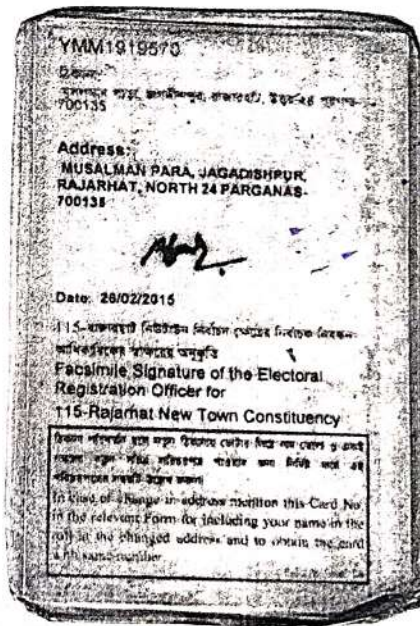 YMM1919570
ঠিকানা:
মুসলমান পাড়া, জগদীশপুর, রাজারহাট, উত্তর ২৪ পরগণা-
700135
Address:
MUSALMAN PARA, JAGADISHPUR,
RAJARHAT, NORTH 24 PARGANAS-
700135
Date: 26/02/2015
115-রাজারহাট নিউটাউন নির্বাচন ক্ষেত্রের নির্বাচক নিবন্ধন
আধিকারিকের স্বাক্ষরের অনুকৃতি
Facsimile Signature of the Electoral
Registration Officer for
115-Rajarhat New Town Constituency
ঠিকানা পরিবর্তন হলে নতুন ঠিকানায় ভোটার লিস্টে নাম তোলা ও একই
নম্বরের নতুন সচিত্র পরিচয়পত্র পাওয়ার জন্য নির্দিষ্ট ফর্মে এই
পরিচয়পত্রের নম্বরটি উল্লেখ করুন।
In case of change in address mention this Card No.
in the relevant Form for including your name in the
roll at the changed address and to obtain the card
with same number.